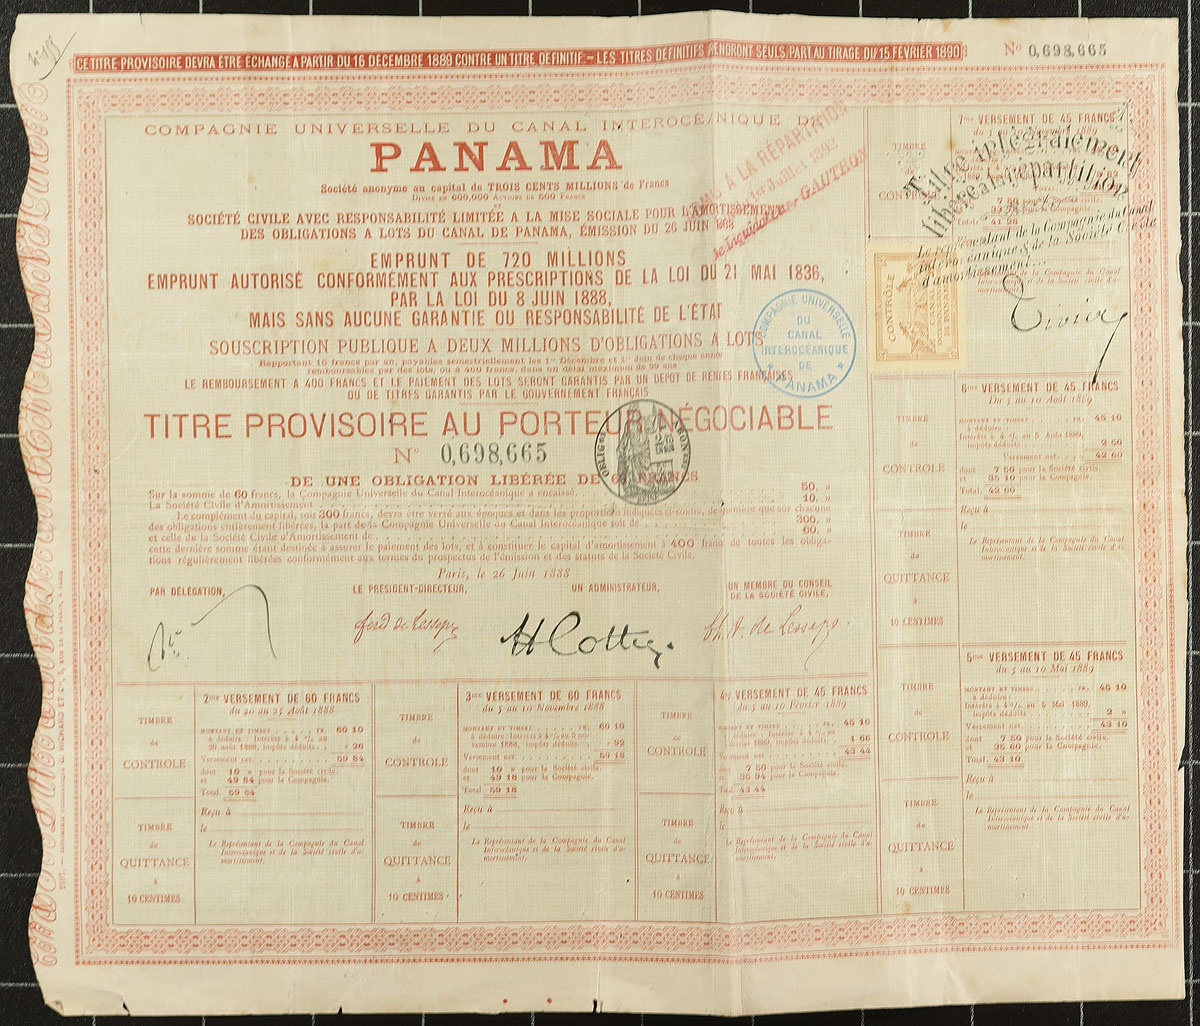 CE TITRE PROVISOIRE DEVRA ÊTRE ÉCHANGÉ A PARTIR DU 16 DÉCEMBRE 1889 CONTRE UN TITRE DÉFINITIF - LES TITRES DÉFINITIFS PRENDRONT SEULS PART AU TIRAGE DU 15 FÉVRIER 1890
N° 0,698,665
COMPAGNIE UNIVERSELLE DU CANAL INTEROCÉANIQUE DE
PANAMA
Société anonyme au capital de TROIS CENTS MILLIONS de Francs
DIVISÉ EN 600,000 ACTIONS DE 500 FRANCS
ET
SOCIÉTÉ CIVILE AVEC RESPONSABILITÉ LIMITÉE A LA MISE SOCIALE POUR L'AMORTISSEMENT
DES OBLIGATIONS A LOTS DU CANAL DE PANAMA, ÉMISSION DU 26 JUIN 1888
EMPRUNT DE 720 MILLIONS
EMPRUNT AUTORISÉ CONFORMÉMENT AUX PRESCRIPTIONS DE LA LOI DU 21 MAI 1836,
PAR LA LOI DU 8 JUIN 1888,
MAIS SANS AUCUNE GARANTIE OU RESPONSABILITÉ DE L'ÉTAT
SOUSCRIPTION PUBLIQUE A DEUX MILLIONS D'OBLIGATIONS A LOTS
Rapportant 15 francs par an, payables semestriellement les 1er Décembre et 1er Juin de chaque année
remboursables par des lots, ou à 400 francs, dans un délai maximum de 99 ans
LE REMBOURSEMENT A 400 FRANCS ET LE PAIEMENT DES LOTS SERONT GARANTIS PAR UN DÉPOT DE RENTES FRANÇAISES
OU DE TITRES GARANTIS PAR LE GOUVERNEMENT FRANÇAIS
TITRE PROVISOIRE AU PORTEUR NÉGOCIABLE
N° 0,698,665
DE UNE OBLIGATION LIBÉRÉE DE 60 FRANCS
Sur la somme de 60 francs, la Compagnie Universelle du Canal Interocéanique a encaissé 50. »
La Société Civile d'Amortissement 10. »
Le complément du capital, soit 300 francs, devra être versé aux époques et dans les proportions indiquées ci-contre, de manière que sur chacune
des obligations entièrement libérées, la part de la Compagnie Universelle du Canal Interocéanique soit de 300. »
et celle de la Société Civile d'Amortissement de 60. »
cette dernière somme étant destinée à assurer le paiement des lots, et à constituer le capital d'amortissement à 400 francs de toutes les obliga-
tions régulièrement libérées conformément aux termes du prospectus de l'émission et des statuts de la Société Civile.
Paris, le 26 Juin 1888
PAR DÉLÉGATION,
LE PRÉSIDENT-DIRECTEUR,
UN ADMINISTRATEUR,
UN MEMBRE DU CONSEIL
DE LA SOCIÉTÉ CIVILE,
Ferd de Lesseps
Ch. A. de Lesseps
COMPAGNIE UNIVERSELLE
DU
CANAL
INTEROCÉANIQUE
DE
PANAMA
A LA RÉPARTITION
Juillet 1893
le liquidateur GAUTRON
Titre intégralement
libéré à la répartition
Le représentant de la Compagnie du Canal
interocéanique & de la Société Civile
d'amortissement
CONTRÔLE
2me VERSEMENT DE 60 FRANCS
du 20 au 25 Août 1888
MONTANT ET TIMBRE FR. 60 10
à déduire : Intérêts à 4 % au
20 août 1888, impôts déduits » 26
Versement net 59 84
dont 10 » pour la Société civile.
et 49 84 pour la Compagnie.
Total 59 84
Reçu à
le
Le Représentant de la Compagnie du Canal
Interocéanique et de la Société civile d'a-
mortissement.
TIMBRE
de
CONTROLE
TIMBRE
de
QUITTANCE
à
10 CENTIMES
3me VERSEMENT DE 60 FRANCS
du 5 au 10 Novembre 1888
MONTANT ET TIMBRE FR. 60 10
à déduire : Intérêts à 4 % au 5 no-
vembre 1888, impôts déduits » 92
Versement net 59 18
dont 10 » pour la Société civile.
et 49 18 pour la Compagnie.
Total 59 18
Reçu à
le
Le Représentant de la Compagnie du Canal
Interocéanique et de la Société civile d'a-
mortissement.
TIMBRE
de
CONTROLE
TIMBRE
de
QUITTANCE
à
10 CENTIMES
4me VERSEMENT DE 45 FRANCS
du 5 au 10 Février 1889
MONTANT ET TIMBRE FR. 45 10
à déduire : Intérêts à 4 % au
5 février 1889, impôts déduits 1 66
Versement net 43 44
dont 7 50 pour la Société civile.
et 35 94 pour la Compagnie.
Total 43 44
Reçu à
le
Le Représentant de la Compagnie du Canal
Interocéanique et de la Société civile d'a-
mortissement.
TIMBRE
de
CONTROLE
TIMBRE
de
QUITTANCE
à
10 CENTIMES
5me VERSEMENT DE 45 FRANCS
du 5 au 10 Mai 1889
MONTANT ET TIMBRE FR. 45 10
à déduire :
Intérêts à 4 % au 5 Mai 1889,
impôts déduits 2 »
Versement net 43 10
dont 7 50 pour la Société civile.
et 35 60 pour la Compagnie.
Total. 43 10
Reçu à
le
Le Représentant de la Compagnie du Canal
Interocéanique et de la Société civile d'a-
mortissement
TIMBRE
de
CONTROLE
TIMBRE
de
QUITTANCE
à
10 CENTIMES
6me VERSEMENT DE 45 FRANCS
Du 5 au 10 Août 1889
MONTANT ET TIMBRE FR. 45 10
à déduire :
Intérêts à 4 % au 5 Août 1889,
impôts déduits 2 50
Versement net 42 60
dont 7 50 pour la Société civile.
et 35 10 pour la Compagnie.
Total. 42 60
Reçu à
le
Le Représentant de la Compagnie du Canal
Interocéanique et de la Société civile d'a-
mortissement.
7me VERSEMENT DE 45 FRANCS
du 5 au 10 Novembre 1889
TIMBRE
CONTROLE
Total 41 28